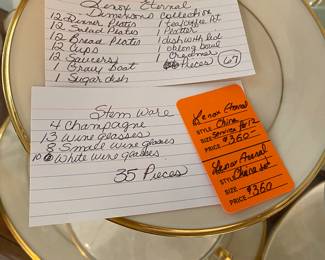 Lenox Eternal
Dimensions Collection
12 Dinner Plates
12 Salad Plates
12 Bread Plates
12 Cups
12 Saucers
1 Gravy Boat
1 Sugar dish
1 tea/coffee pt
1 Platter
1 dish with lid
1 oblong bowl
Creamer
Pieces 67
Stem Ware
4 Champagne
13 wine glasses
8 Small wine glasses
10 White wine glasses
35 Pieces
Lenox
STYLE China
SIZE Service for 12
PRICE $360—
Lenox
STYLE China set
SIZE
PRICE $360